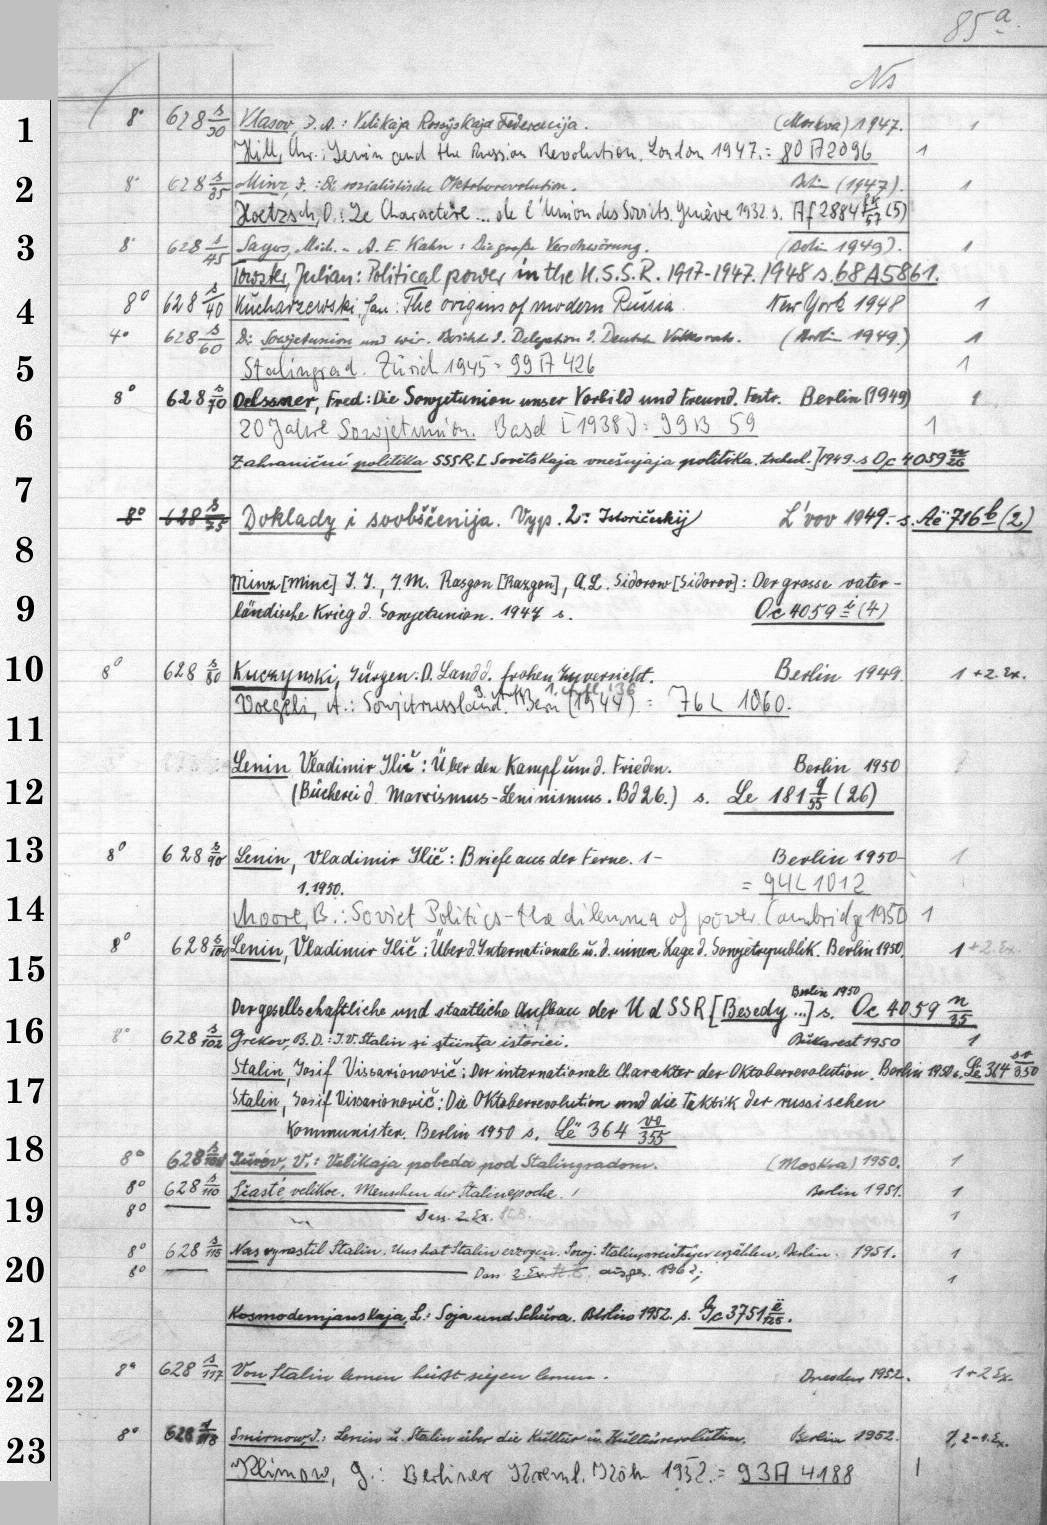 85ᵃ
Ns
1 8° 628 s/30 Vlasov, I. A.: Velikaja Rossijskaja Federacija. (Moskva) 1947. 1
Hill, Chr.: Lenin and the Russian Revolution. London 1947. = 80 A 2096 1
2 8° 628 s/35 Minz, I.: Die sozialistische Oktoberrevolution. Berlin (1947). 1
Hoetzsch, O.: Le Charactère ... de l'Union des Soviets. Genève 1932 s. Af 2884 /57 (5)
3 8° 628 s/45 Sayers, Mich. - A. E. Kahn: Die große Verschwörung. (Berlin 1949). 1
Towster, Julian: Political power in the U.S.S.R. 1917-1947. 1948 s. 68 A 5861.
4 8° 628 s/40 Kucharzewski, Jan: The origins of modern Russia. New York 1948 1
4° 628 s/60 Die Sowjetunion und wir. Bericht d. Delegation d. Deutsch. Volksrats. (Berlin 1949.) 1
5 Stalingrad. Zürich 1945 = 99 A 426 1
8° 628 s/70 Oelssner, Fred: Die Sowjetunion unser Vorbild und Freund. Festr. Berlin (1949) 1
6 20 Jahre Sowjetunion. Basel [1938] = 99 B 59 1
Zahraniční politika SSSR. [Sovětskaja vnešnjaja politika. tschech.] 1949. s Oc 4059 /26
7 8° 628 s/75 Doklady i soobščenija. Vyp. 2: Istoričeskij L'vov 1949. s. Aë 716 b (2)
8
9 Minz [Minc] I. I., I. M. Rasgon [Razgon], A. L. Sidorow [Sidorov]: Der grosse vater-
ländische Krieg d. Sowjetunion. 1947 s. Oc 4059 i (4)
10 8° 628 s/80 Kuczynski, Jürgen: D. Land d. frohen Zuversicht. Berlin 1949 1 + 2. Ex.
Voegeli, A.: Sowjetrussland. 3. Aufl. Bern (1944) 1. Aufl. '36 = 76 L 1060.
11
12 Lenin Vladimir Ilič: Über den Kampf um d. Frieden. Berlin 1950
(Bücherei d. Marxismus-Leninismus. Bd 26.) s. Le 181 q/55 (26)
13 8° 628 s/90 Lenin, Vladimir Ilič: Briefe aus der Ferne. 1- Berlin 1950- 1
1.1950. = 94 L 1012
14 Moore, B.: Soviet Politics - the dilemma of power. Cambridge 1950 1
8° 628 s/100 Lenin, Vladimir Ilič: Über d. Internationale u. d. innere Lage d. Sowjetrepublik. Berlin 1950. 1 + 2. Ex.
15
Der gesellschaftliche und staatliche Aufbau der UdSSR [Besedy ...] Berlin 1950 s. Oc 4059 n/35
16 8° 628 s/102 Grekov, B. D.: I. V. Stalin şi ştiinţa istoriei. Bukarest 1950 1
Stalin, Josif Vissarionovič: Der internationale Charakter der Oktoberrevolution. Berlin 1950 s. Le 364 /350
17 Stalin, Josif Vissarionovič: Die Oktoberrevolution und die Taktik der russischen
Kommunisten. Berlin 1950 s. Lë 364 vo/355
18 8° 628 s/ V.: Velikaja pobeda pod Stalingradom. (Moskva) 1950. 1
8° 628 s/110 Sčast'e velikoe. Menschen der Stalinepoche. Berlin 1951. 1
19 8° —— Dass. 2. Ex. 1
8° 628 s/115 Nas vyrastil Stalin. Uns hat Stalin erzogen. Sowj. Stalinpreisträger erzählen. Berlin. 1951. 1
20 8° —— Dass. 2. Ex. ausges. 1962; 1
21 Kosmodemjanskaja, L.: Soja und Schura. Berlin 1952. s. 3751 ë/125.
22 8° 628 s/117 Von Stalin lernen heißt siegen lernen. Dresden 1952. 1 + 2 Ex.
23 8° 628 s/118 Smirnow, I.: Lenin u. Stalin über die Kultur u. Kulturrevolution. Berlin 1952. 1, 2-1. Ex.
Klimow, G.: Berliner Kreml. Köln 1952. = 93 A 4188 1